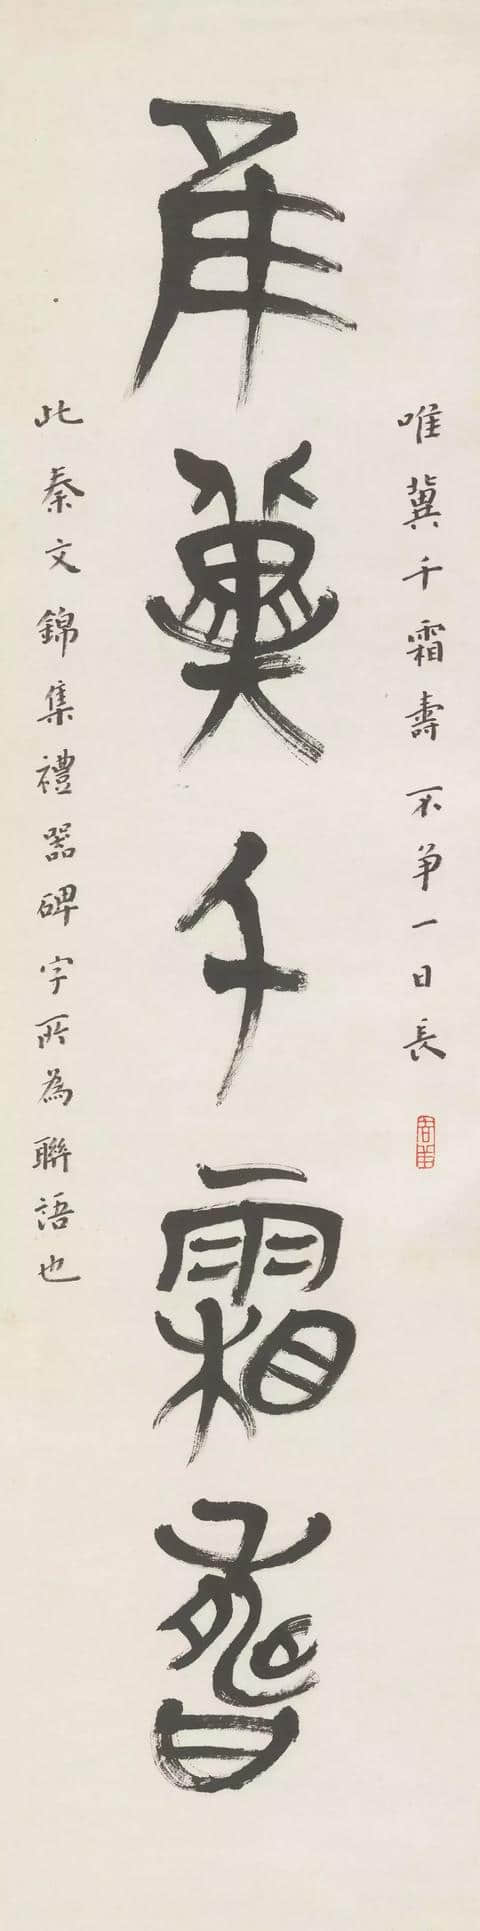 唯冀千霜壽不争一日長
唯冀千霜壽
此秦文錦集禮器碑字所為聯語也